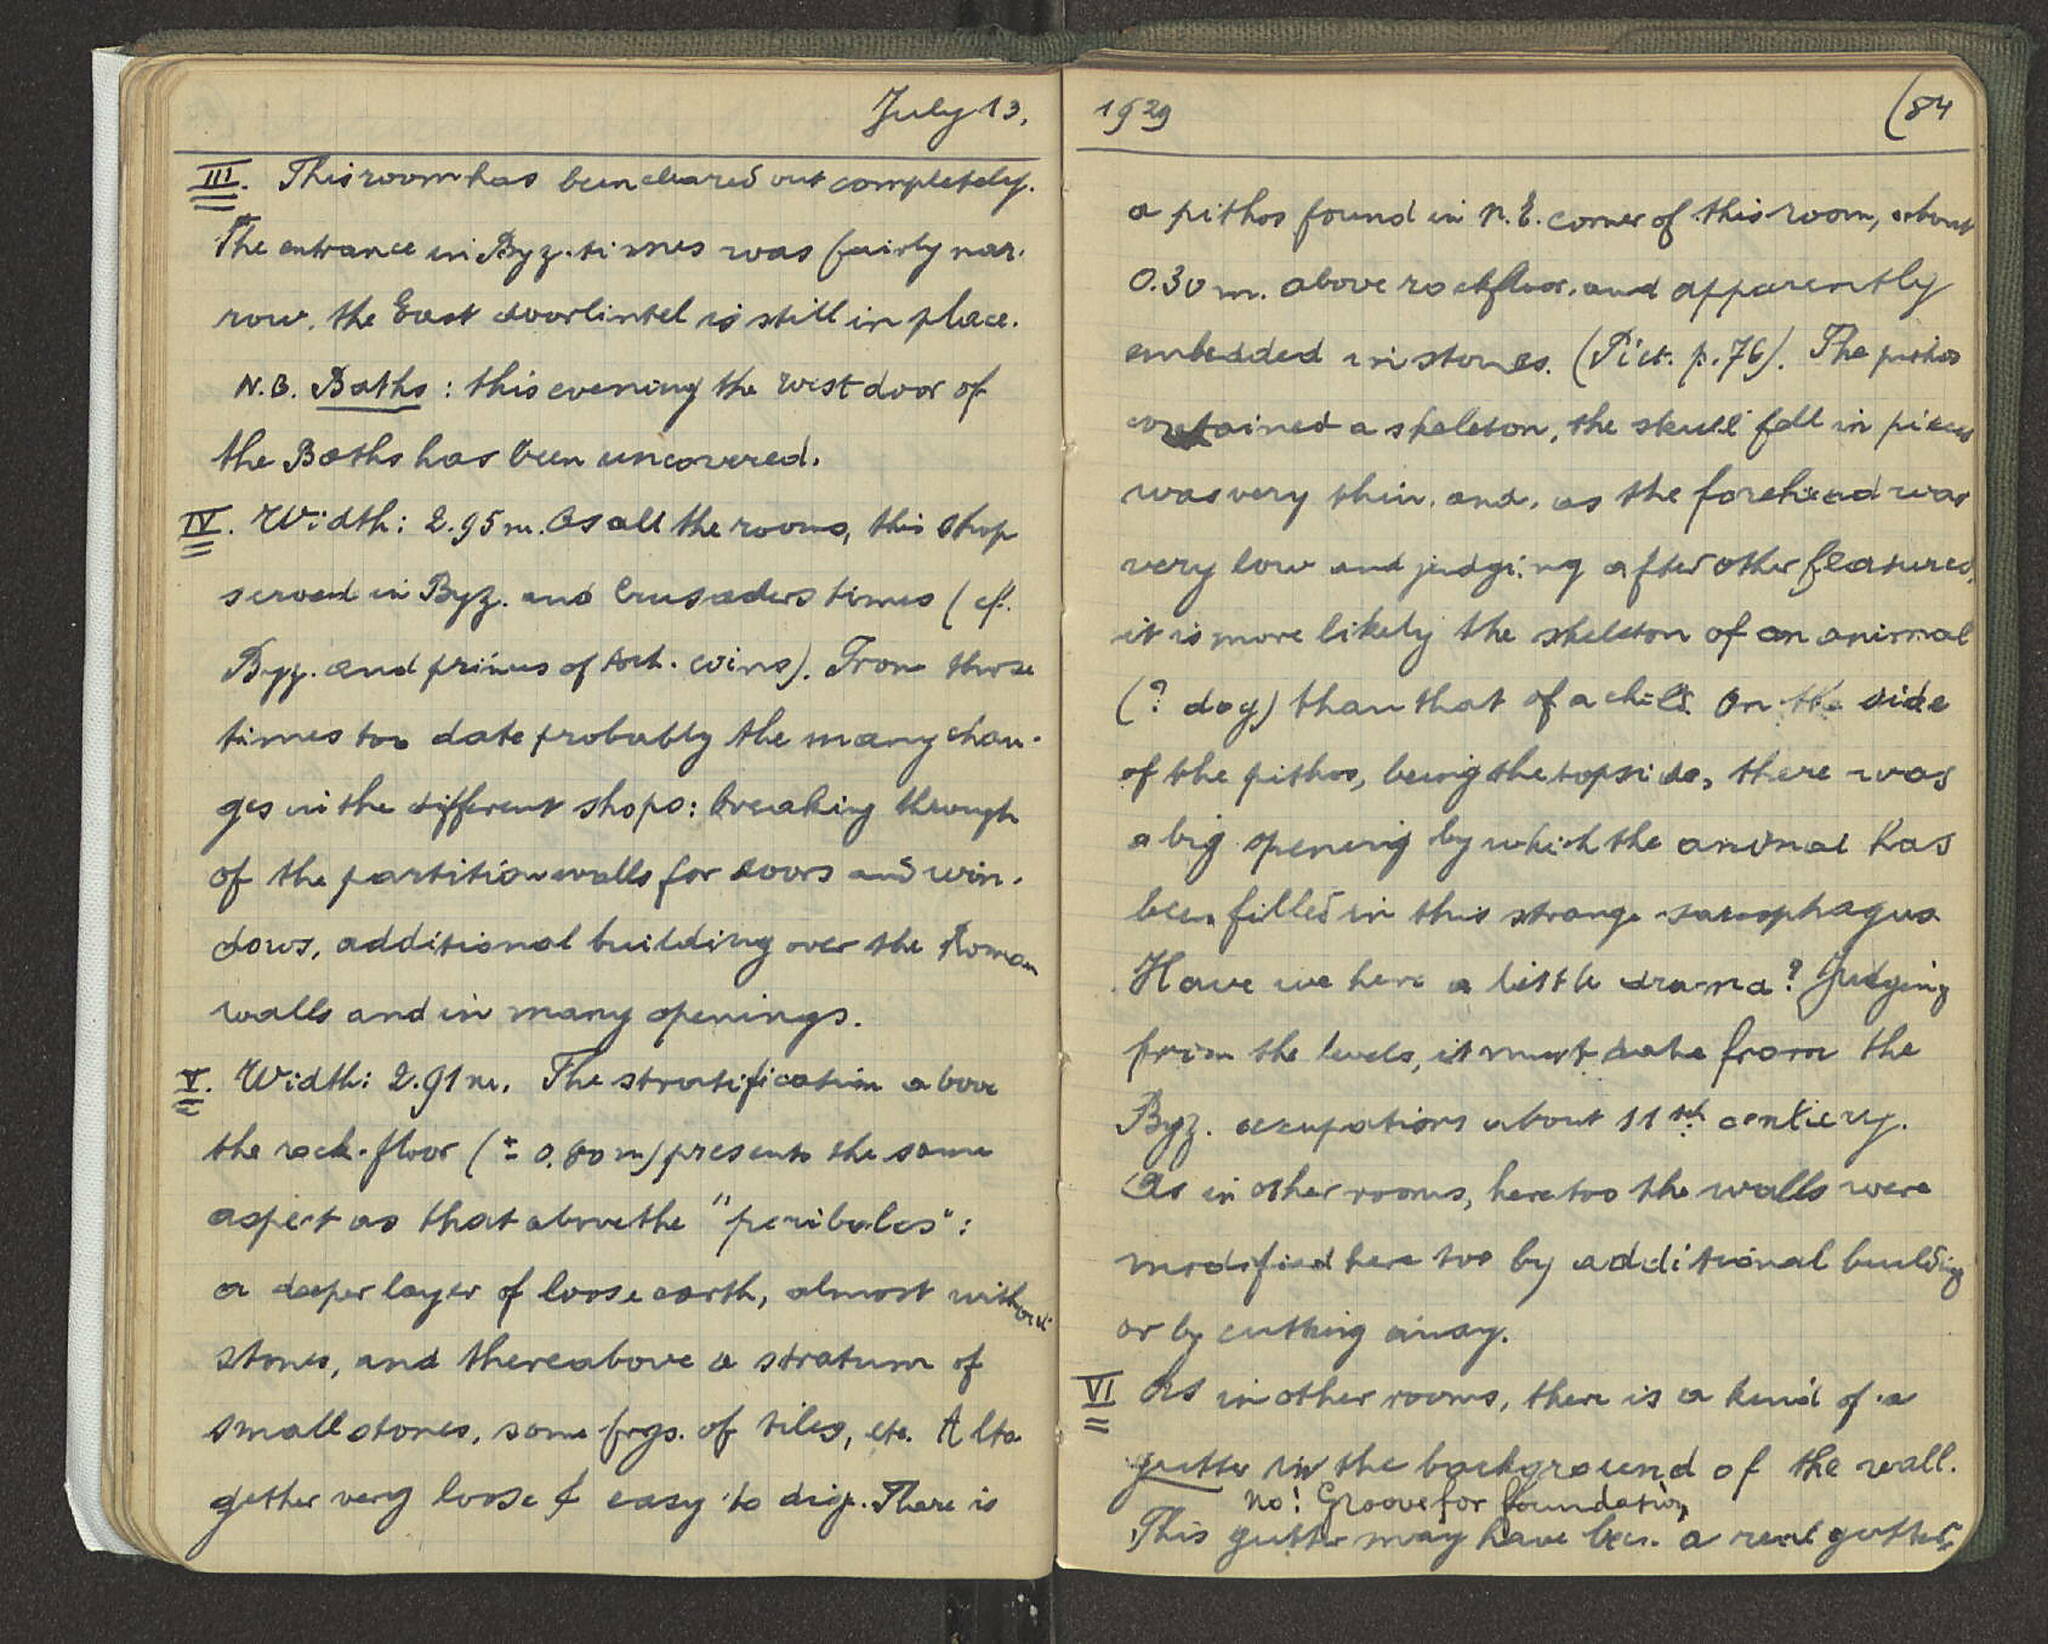 July 13.
III. This room has been cleared out completely.
The entrance in Byz. times was fairly nar-
row. the East doorlintel is still in place.
N.B. Baths: this evening the west door of
the Baths has been uncovered.
IV. Width: 2.95 m. As all the rooms, this shop
served in Byz. and Crusaders times (cf.
Byz. and princes of Ant. coins). From those
times too date probably the many chan-
ges in the different shops: breaking through
of the partition walls for doors and win-
dows, additional building over the Roman
walls and in many openings.
V. Width: 2.91 m. The stratification above
the rock-floor (± 0.80 m) presents the same
aspect as that above the "peribolos":
a deeper layer of loose earth, almost without
stones, and thereabove a stratum of
small stones, some frgs. of tiles, etc. Alto-
gether very loose & easy to dig. There is
1929 (84
a pithos found in N.E. corner of this room, about
0.30 m. above rockfloor, and apparently
embedded in stones. (Pict. p.76). The pithos
contained a skeleton, the skull fell in pieces
was very thin. and, as the forehead was
very low and judging after other features,
it is more likely the skeleton of an animal
(? dog) than that of a child. On the side
of the pithos, being the topside, there was
a big opening by which the animal has
been filled in this strange sarcophagus.
Have we here a little drama? Judging
from the levels, it must date from the
Byz. occupations about 11th century.
As in other rooms, here too the walls were
modified here too by additional building
or by cutting away.
VI As in other rooms, there is a kind of a
gutter in the background of the wall.
No! Groove for foundation
This gutter may have been a real gutter,